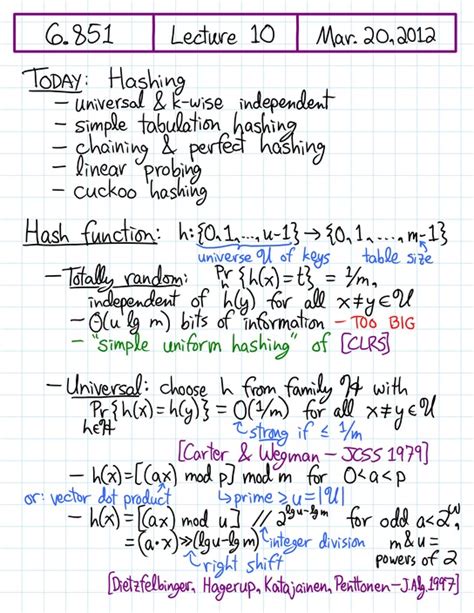 6.851 Lecture 10 Mar. 20, 2012
TODAY: Hashing
– universal & k-wise independent
– simple tabulation hashing
– chaining & perfect hashing
– linear probing
– cuckoo hashing
Hash function: h: {0,1,...,u-1} → {0,1,...,m-1}
universe 𝒰 of keys table size
– Totally random: Pr_h{h(x)=t} = 1/m,
independent of h(y) for all x≠y∈𝒰
– Θ(u lg m) bits of information – TOO BIG
– "simple uniform hashing" of [CLRS]
– Universal: choose h from family ℋ with
Pr_{h∈ℋ}{h(x)=h(y)} = O(1/m) for all x≠y∈𝒰
strong if ≤ 1/m
[Carter & Wegman – JCSS 1979]
– h(x)=[(ax) mod p] mod m for 0<a<p
or: vector dot product prime ≥ u=|𝒰|
– h(x)=[(ax) mod u] // 2^{lg u-lg m} for odd a<2^w,
=(a·x)≫(lg u-lg m) integer division m & u =
right shift powers of 2
[Dietzfelbinger, Hagerup, Katajainen, Penttonen – J.Alg. 1997]